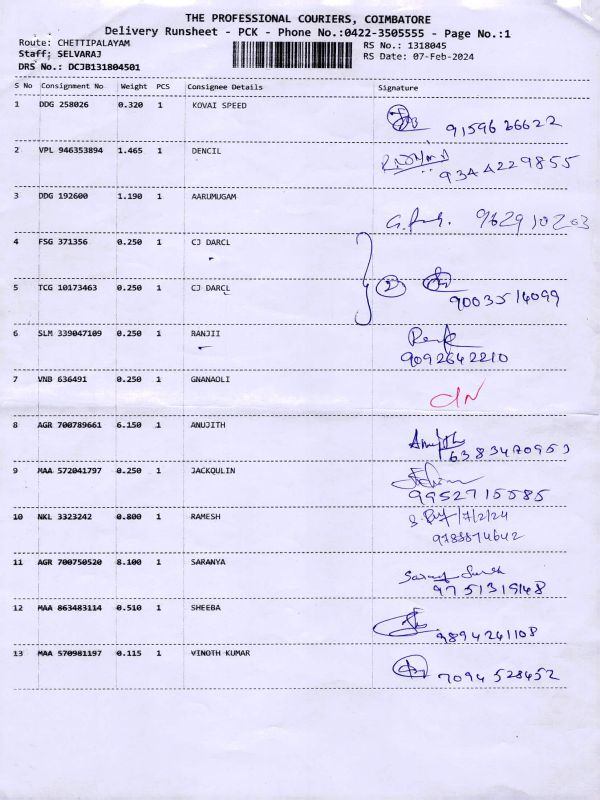 THE PROFESSIONAL COURIERS, COIMBATORE
Delivery Runsheet - PCK - Phone No.:0422-3505555 - Page No.:1
Route: CHETTIPALAYAM RS No.: 1318045
Staff; SELVARAJ RS Date: 07-Feb-2024
DRS No.: DCJB131804501
S No Consignment No Weight PCS Consignee Details Signature
1 DDG 258026 0.320 1 KOVAI SPEED
9159626622
2 VPL 946353894 1.465 1 DENCIL
9344229855
3 DDG 192600 1.190 1 AARUMUGAM
4 FSG 371356 0.250 1 CJ DARCL
5 TCG 10173463 0.250 1 CJ DARCL
2
9003514099
6 SLM 339047109 0.250 1 RANJII
9092642210
7 VNB 636491 0.250 1 GNANAOLI
8 AGR 700789661 6.150 1 ANUJITH
Anujith
6383470953
9 MAA 572041797 0.250 1 JACKQULIN
9952715585
10 NKL 3323242 0.800 1 RAMESH
7/2/24
11 AGR 700750520 8.100 1 SARANYA
9751319148
12 MAA 863483114 0.510 1 SHEEBA
9894241108
13 MAA 570981197 0.115 1 VINOTH KUMAR
7094528452